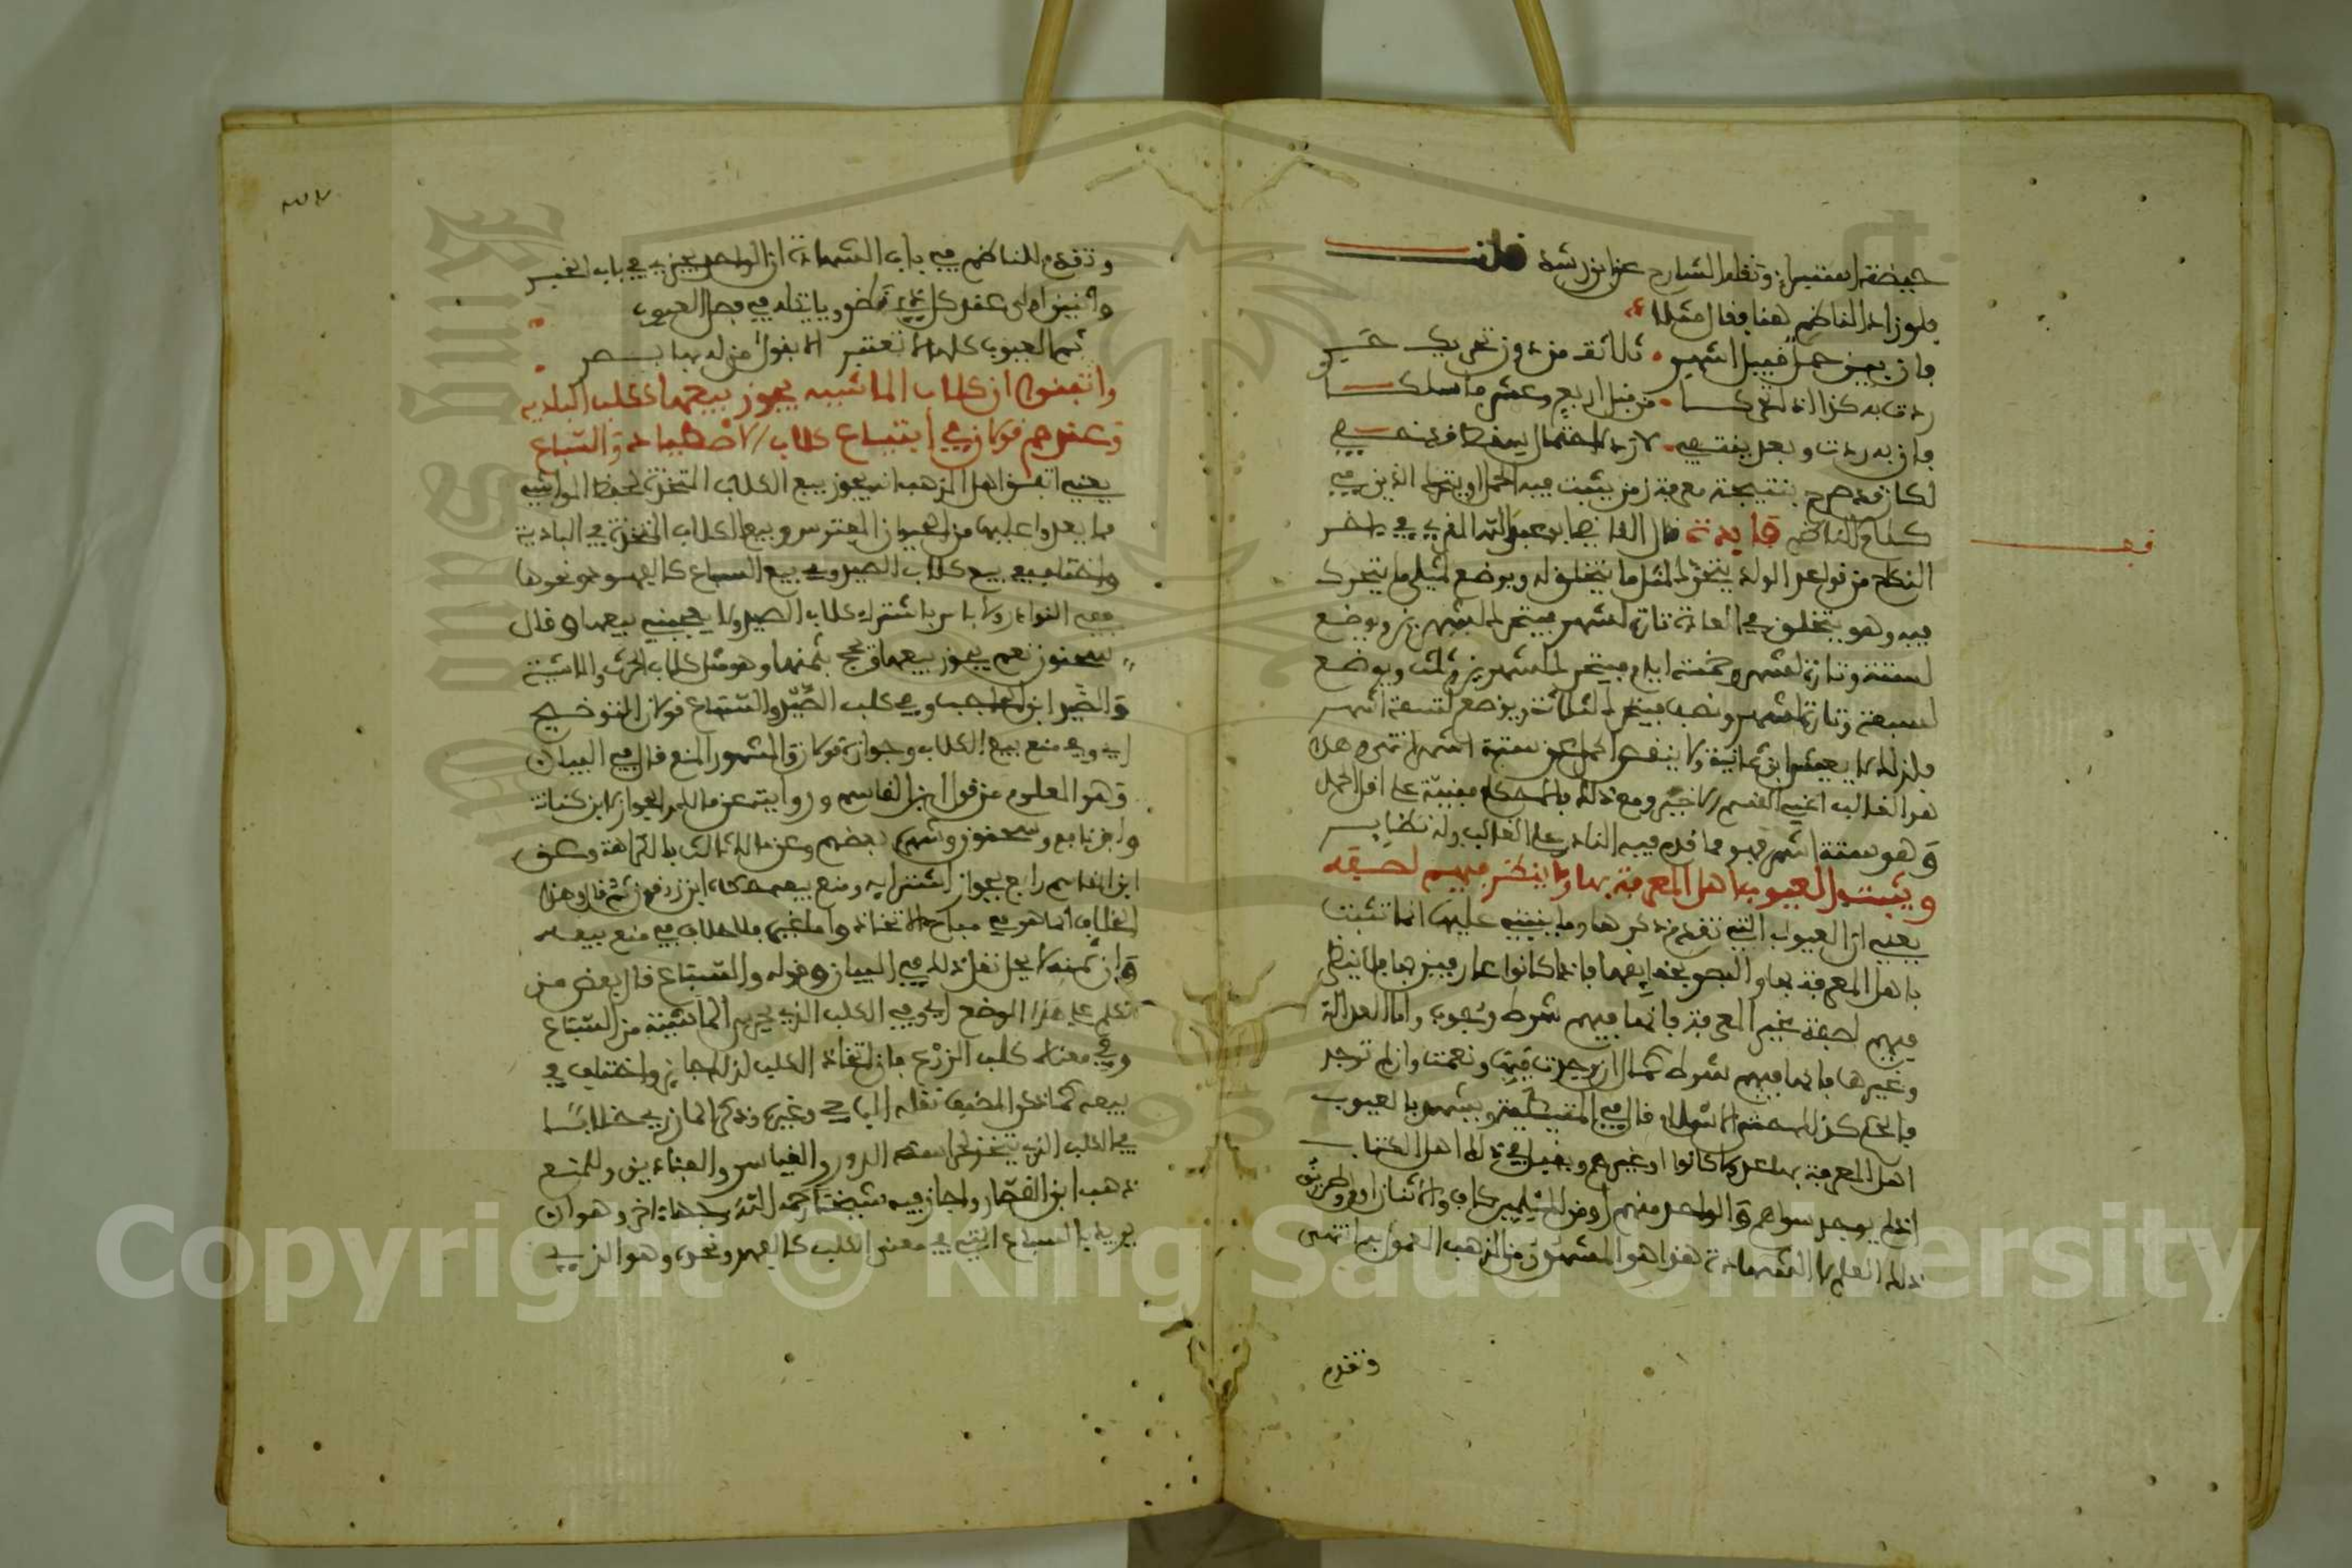 حيضة استبراء ونقله الشارح عن ابن رشد قلت
فلو زاد الناظم هنا فقال مثلا
فان يبن حمل قبيل اشهر ثلاثة من دون تحريك حري
ردت به كذا اذا تحركا من قبل اربع وعشر ما سلكا
وان به ردت وبعل ينتفي لان الاحتمال
لكان قد صرح بنتيجة معرفة زمن يثبت فيه الحمل او يتحرك الذين في
كلام الناظم فايدة قال القاضي ابو عبد الله المقري في اخر
النكاح من قواعد الولد يتحرك لمثل ما يتخلق له ويوضع لمثلي ما يتحرك
فيه وهو يتخلق في العادة تارة لشهر فيتحرك لشهرين ويوضع
لستة وتارة لشهر وخمسة ايام فيتحرك لشهرين وثلث ويوضع
لسبعة وتارة لشهر ونصف فيتحرك لثلاثة ويوضع لتسعة اشهر
فلذلك لا يعيش ابن ثمانية ولا ينقص الحمل عن ستة اشهر انتهى هذا
هو الغالب اعني القسم الاخير ومع ذلك فالاحكام مبنية على اقل الحمل
وهو ستة اشهر فهو مما قدم فيه النادر على الغالب وله نظاير
ويثبت العيوب اهل المعرفة بها ولا ينظر فيهم لصفه
يعني ان العيوب التي تقدم ذكرها وما ينبني عليها انما تثبت
باهل المعرفة بها والبصر بحقايقها فاذا كانوا عارفين بها فلا ينظر
فيهم لصفة غير المعرفة فانها فيهم شرط وجوب واما العدالة
وغيرها فانها فيهم شرط كمال ان وجدت فبها ونعمت وان لم توجد
فالحكم كذلك قال في المتيطية ويشهد بالعيوب
اهل المعرفة بها عدولا كانوا او غيرهم ويقبل في ذلك اهل الكتاب
اذا لم يوجد سواهم والواحد منهم او من المسلمين كاف والاثنان اولى وطريق
ذلك العلم لا الشهادة هذا هو المشهور من المذهب المعمول به انتهى
وتقدم
وتقدم للناظم في باب الشهادة ان الواحد يجزي في باب الخبر
واثنين اولى عند كل ذي نظر وياتي له في فصل العيوب
ثم العيوب كلها لا تعتبر الا بقول من له بها بصر
واتفقوا ان كلاب الماشيه يجوز بيعها ككلب الباديه
وعندهم قولان في ابتياع كلاب الاصطياد والسباع
يعني اتفق اهل المذهب انه يجوز بيع الكلاب المتخذة لحفظ المواشي
مما يعدوا عليها من الحيوان المفترس وبيع الكلاب المتخذة في البادية
واختلف في بيع كلاب الصيد وفي بيع السباع كالفهود ونحوها
ففي النوادر ولا باس باشتراء كلاب الصيد ولا يعجبني بيعها وقال
سحنون نعم يجوز بيعها ويحج بثمنها وهو مثل كلاب الحرث والماشية
والضير ابن الحاجب وفي كلب الصيد والسباع قولان التوضيح
اي وفي منع بيع الكلاب وجوازه قولان والمشهور المنع قال في البيان
وهو المعلوم من قول ابن القاسم وروايته عن مالك والجواز لابن كنانة
وابن نافع وسحنون وشهره بعضهم وعن مالك ثالث بالكراهة وعن
ابن القاسم رابع بجواز اشترايه ومنع بيعه حكاه ابن زرقون ثم قال وهذا
الخلاف انما هو في مباح الاتخاذ واما غيره فلا خلاف في منع بيعه
وان ثمنه لا يحل نقل ذلك في البيان وقوله والسباع قال بعض من
تكلم على هذا الموضع اي وفي الكلب الذي يحرس الماشية من السباع
وفي معناه كلب الزرع فان اتخاذ الكلب لذلك جايز واختلف في
بيعه كما ذكر المصنف نقله الباجي وغيره وذكر المازري خلافا
في الكلب الذي يتخذ لحراسة الدور والفنادق وللمنع
ذهب ابن القصار واجاز فيه شيخنا رحمه الله وجها اخر وهو ان
يريد بالسباع التي في معنى الكلب كالفهد ونحوه وهو الذي
Copyright © King Saud University
1957